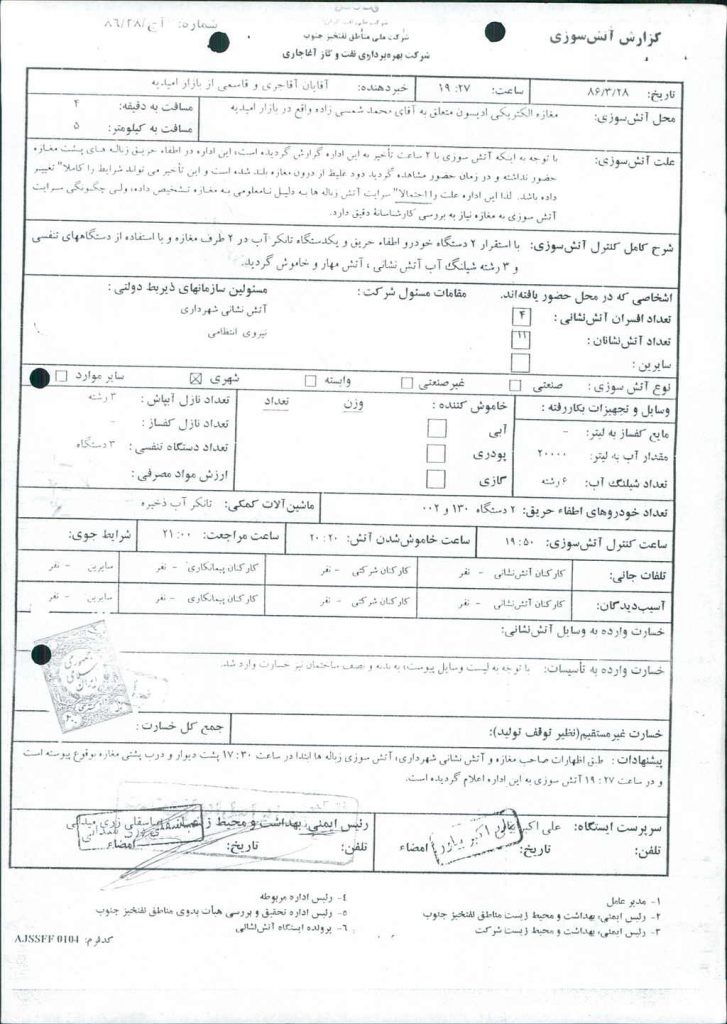 شماره: آج/۸۶/۲۸
گزارش آتش سوزی
شرکت ملی مناطق نفتخیز جنوب
شرکت بهره‌برداری نفت و گاز آغاجاری
تاریخ: ۸۶/۳/۲۸ ساعت: ۱۹:۲۷ خبردهنده: آقایان آقاجری و قاسمی از بازار امیدیه
محل آتش سوزی: مغازه الکتریکی ادیسون متعلق به آقای محمد شمسی زاده واقع در بازار امیدیه
مسافت به دقیقه: ۴
مسافت به کیلومتر: ۵
علت آتش سوزی: با توجه به اینکه آتش سوزی با ۲ ساعت تأخیر به این اداره گزارش گردیده است، این اداره در اطفاء حریق زباله های پشت مغازه
حضور نداشته و در زمان حضور مشاهده گردید دود غلیظ از درون مغازه بلند شده است و این تأخیر می تواند شرایط را کاملا" تغییر
داده باشد. لذا این اداره علت را احتمالا" سرایت آتش زباله ها به دلیل نامعلومی به مغازه تشخیص داده، ولی چگونگی سرایت
آتش سوزی به مغازه نیاز به بررسی کارشناسانۀ دقیق دارد.
شرح کامل کنترل آتش سوزی: با استقرار ۲ دستگاه خودرو اطفاء حریق و یکدستگاه تانکر آب در ۲ طرف مغازه و با استفاده از دستگاههای تنفسی
و ۳ رشته شیلنگ آب آتش نشانی، آتش مهار و خاموش گردید.
اشخاصی که در محل حضور یافته‌اند. مقامات مسئول شرکت: مسئولین سازمانهای ذیربط دولتی:
تعداد افسران آتش‌نشانی: ۴ آتش نشانی شهرداری
تعداد آتش‌نشانان: ۱۱ نیروی انتظامی
سایرین:
نوع آتش سوزی: صنعتی غیرصنعتی وابسته شهری سایر موارد
وسایل و تجهیزات بکاررفته: خاموش کننده: وزن تعداد تعداد نازل آبپاش: ۳ رشته
مایع کفساز به لیتر: - آبی تعداد نازل کفساز: -
مقدار آب به لیتر: ۲۰۰۰۰ پودری تعداد دستگاه تنفسی: ۳ دستگاه
تعداد شیلنگ آب: ۶ رشته گازی ارزش مواد مصرفی:
تعداد خودروهای اطفاء حریق: ۲ دستگاه ۱۳۰ و ۰۰۲ ماشین‌آلات کمکی: تانکر آب ذخیره
ساعت کنترل آتش‌سوزی: ۱۹:۵۰ ساعت خاموش‌شدن آتش: ۲۰:۲۰ ساعت مراجعت: ۲۱:۰۰ شرایط جوی:
تلفات جانی: کارکنان آتش‌نشانی - نفر کارکنان شرکتی - نفر کارکنان پیمانکاری - نفر سایرین - نفر
آسیب‌دیدگان: کارکنان آتش‌نشانی - نفر کارکنان شرکتی - نفر کارکنان پیمانکاری - نفر سایرین - نفر
خسارت وارده به وسایل آتش‌نشانی:
خسارت وارده به تأسیسات: با توجه به لیست وسایل پیوست، به بدنه و نصف ساختمان نیز خسارت وارد شد.
جمهوری اسلامی ایران
خسارت غیرمستقیم(نظیر توقف تولید): جمع کل خسارت:
پیشنهادات: طبق اظهارات صاحب مغازه و آتش نشانی شهرداری، آتش سوزی زباله ها ابتدا در ساعت ۱۷:۳۰ پشت دیوار و درب پشتی مغازه بوقوع پیوسته است
و در ساعت ۱۹:۲۷ آتش سوزی به این اداره اعلام گردیده است.
سرپرست ایستگاه: علی اکبر یاور رئیس ایمنی، بهداشت و محیط زیست
تلفن: تاریخ: امضاء تلفن: تاریخ: امضاء
علی اکبر یاور
۱- مدیر عامل
۲- رئیس ایمنی، بهداشت و محیط زیست مناطق نفتخیز جنوب
۳- رئیس ایمنی، بهداشت و محیط زیست شرکت
۴- رئیس اداره مربوطه
۵- رئیس اداره تحقیق و بررسی هیأت بدوی مناطق نفتخیز جنوب
۶- پرونده ایستگاه آتش‌نشانی
کدفرم: AJSSFF 0104